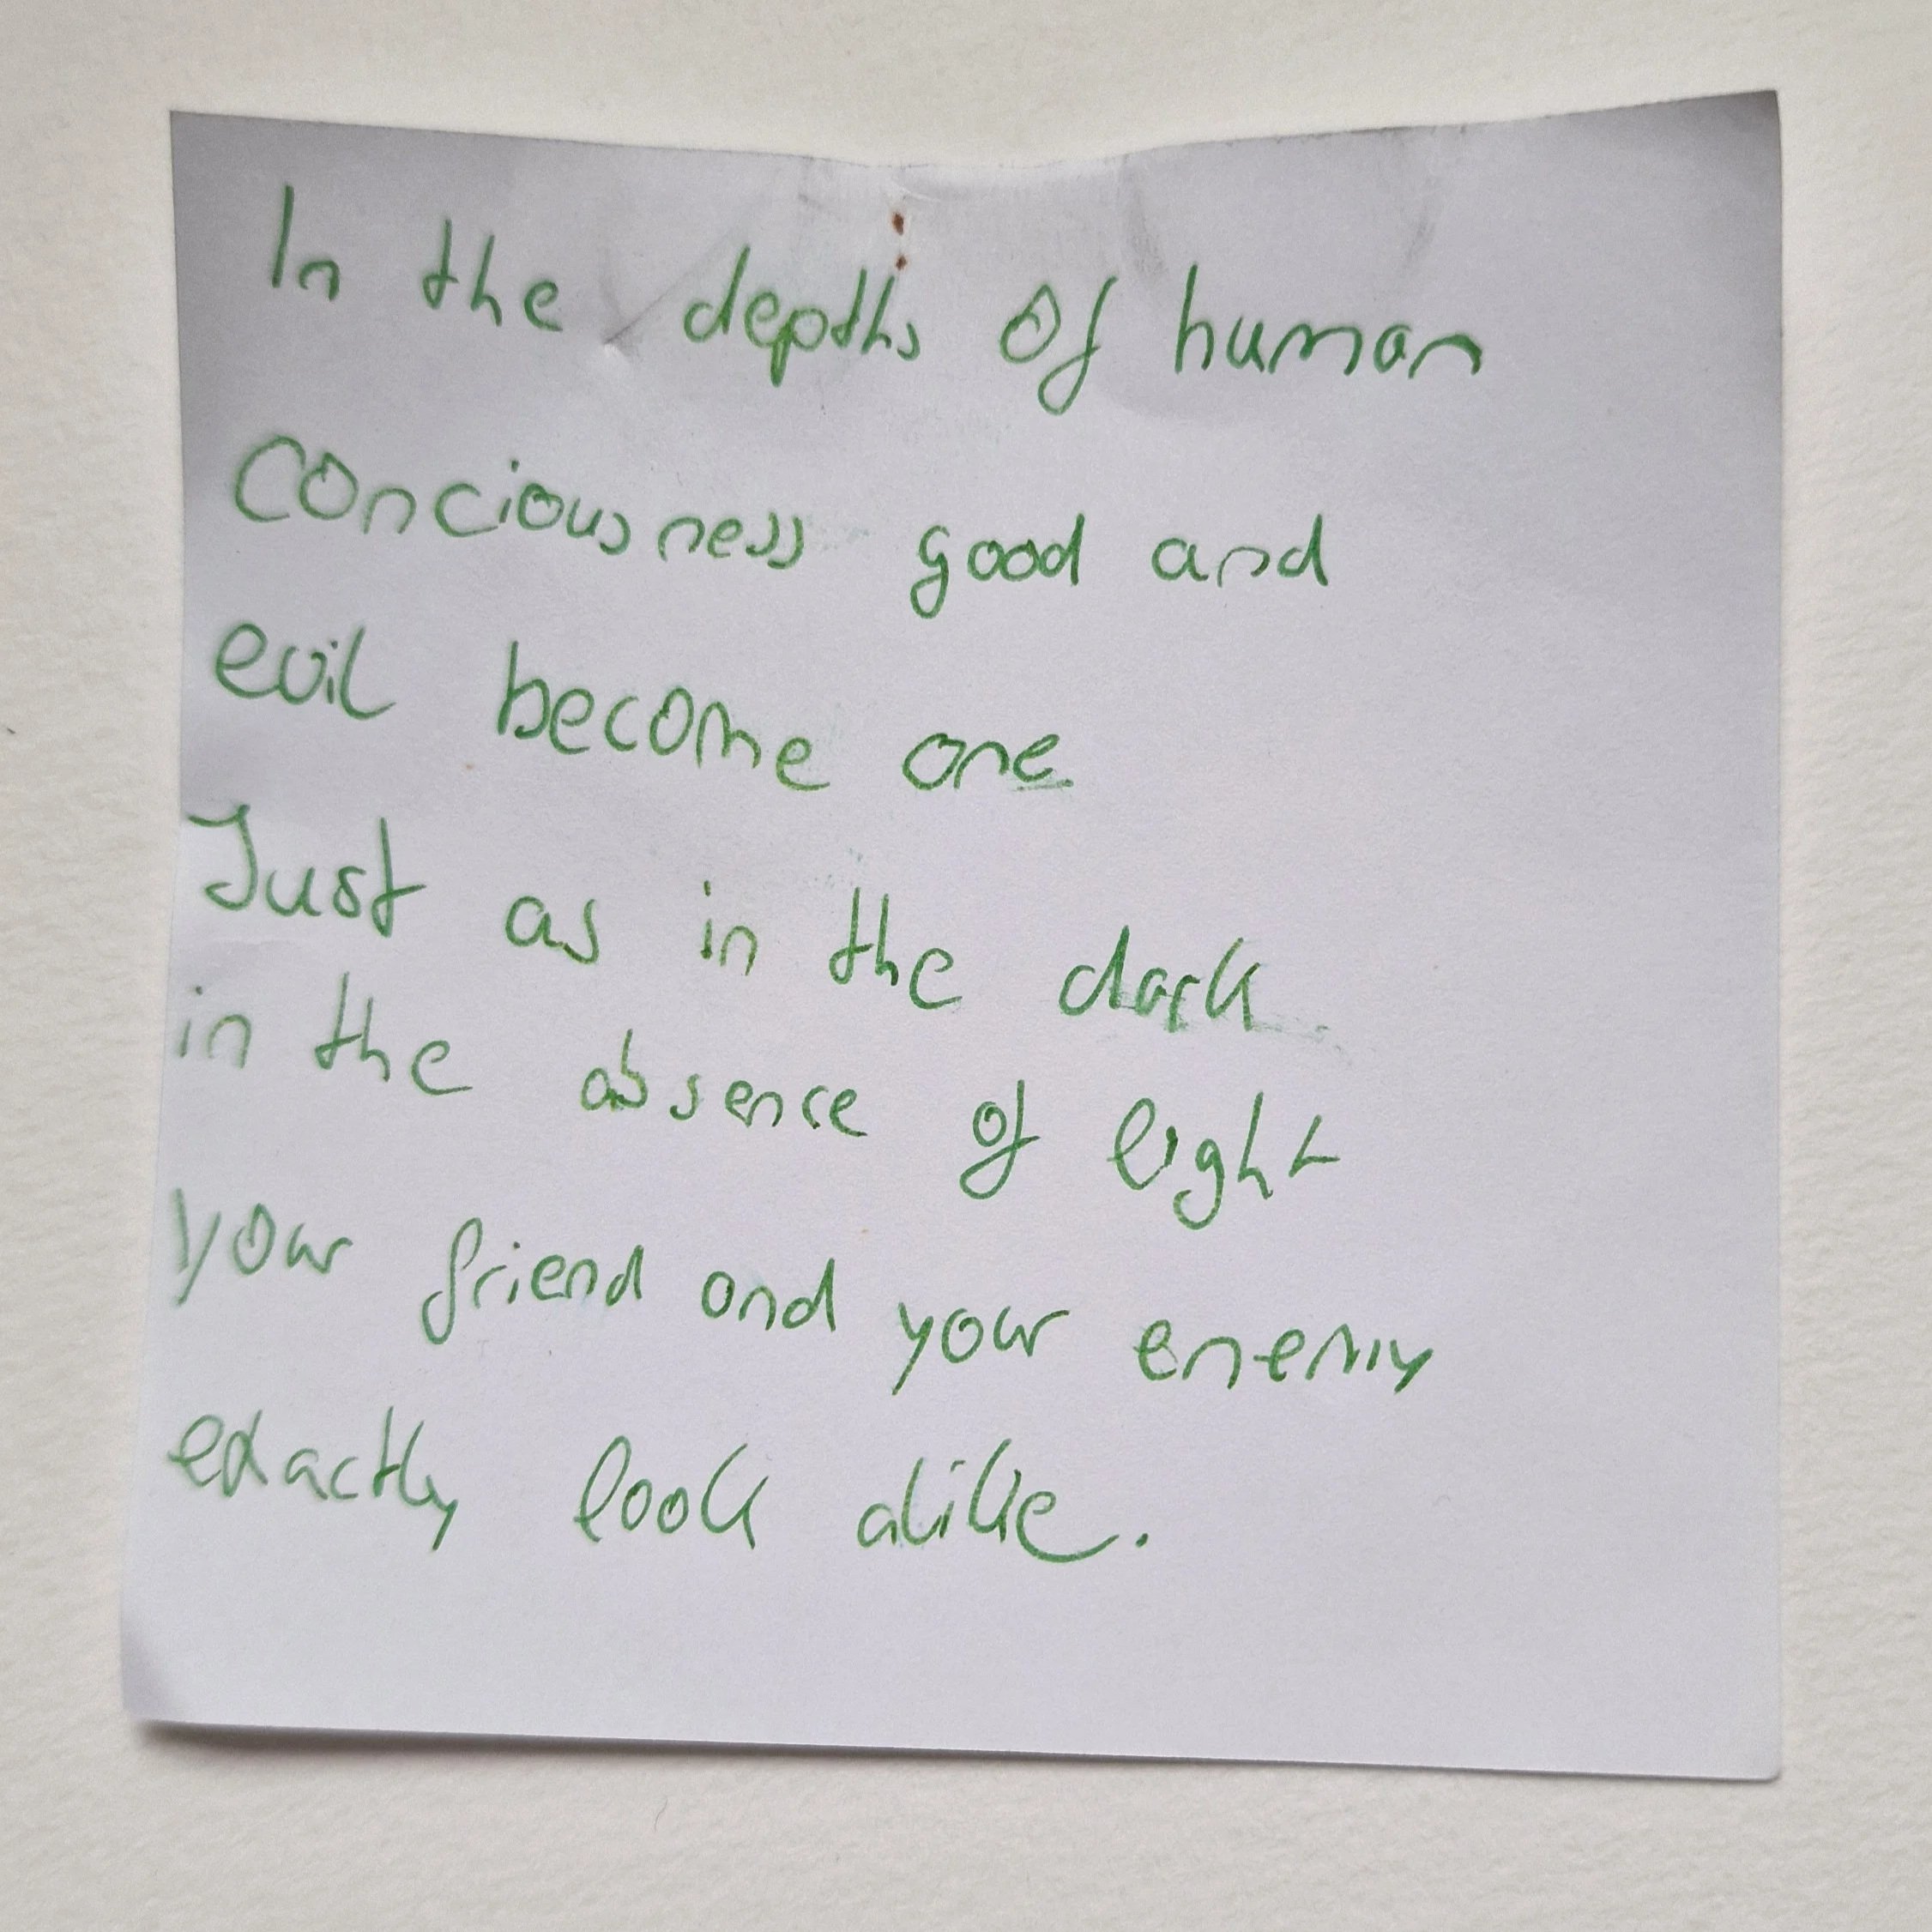 In the depths of human
conciousness good and
evil become one.
Just as in the dark
in the absence of light
your friend and your enemy
exactly look alike.